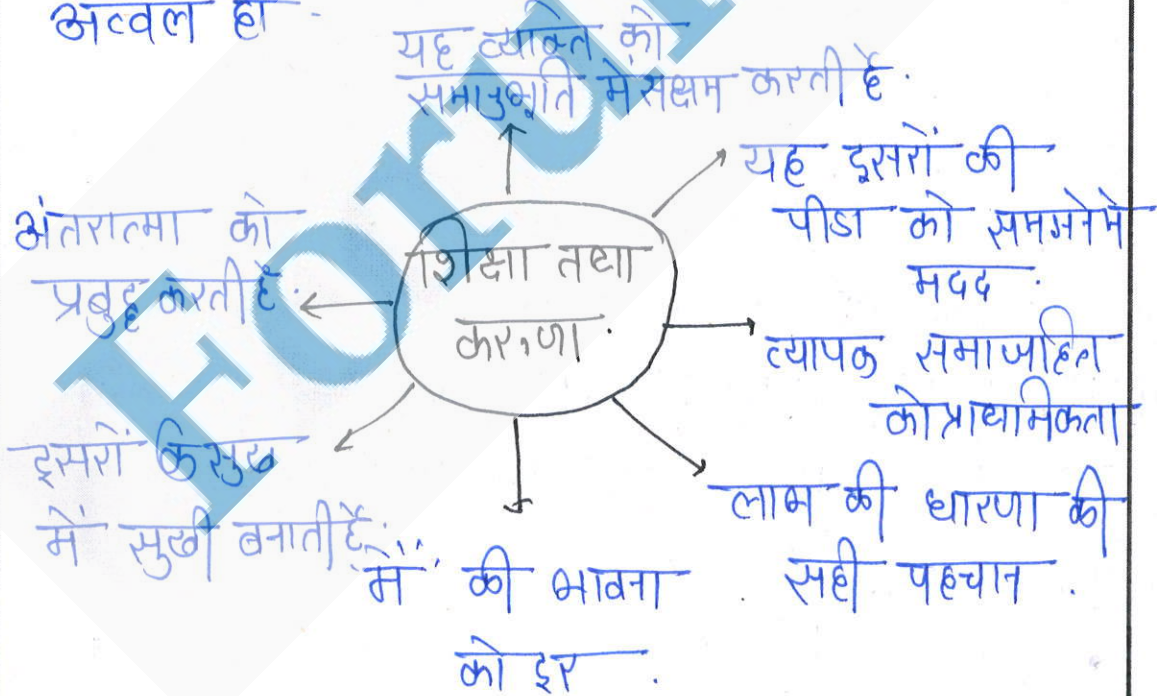 अव्वल हो -
यह व्यक्ति को
समानुभूति में सक्षम करती है.
यह दूसरों की
पीडा को समझने मे
मदद .
अंतरात्मा को
प्रबुद्ध करती है.
शिक्षा तथा
करुणा.
व्यापक समाजहित
को प्राथमिकता
दूसरों के सुख
में सुखी बनाती है.
लाभ की धारणा की
सही पहचान .
"मैं" की भावना
को दूर .
Foru